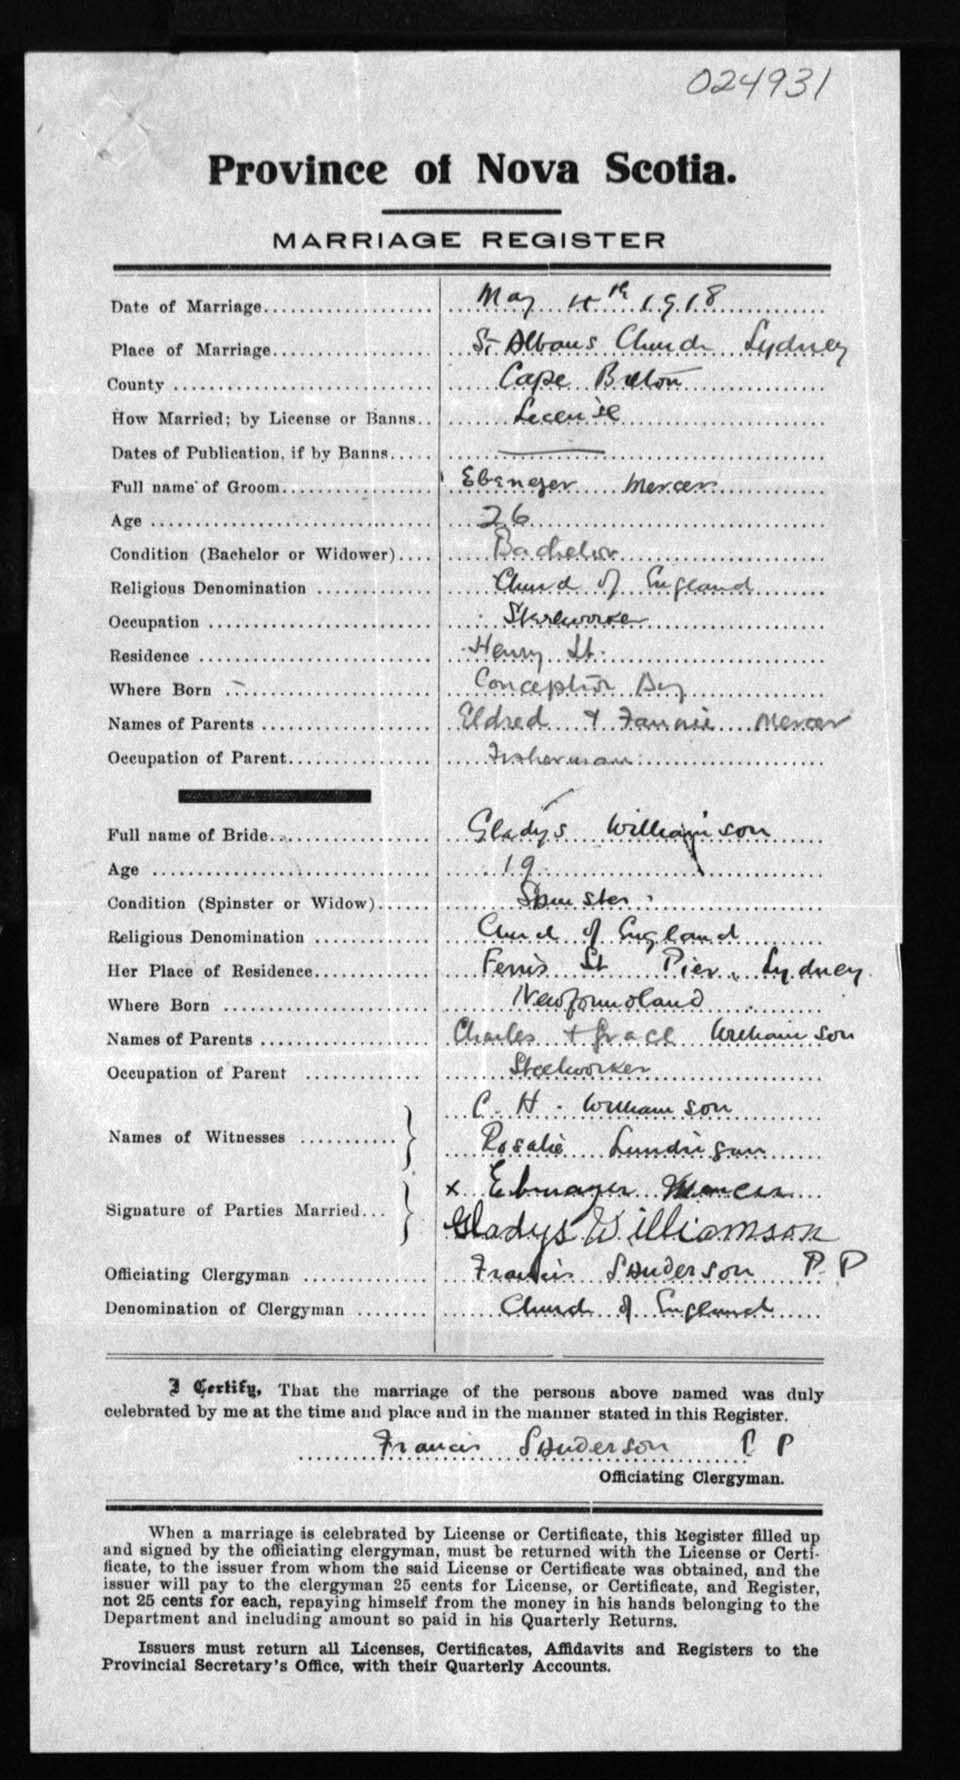 024931
Province of Nova Scotia.
MARRIAGE REGISTER
Date of Marriage................... May 4th 1918
Place of Marriage.................. St Albans Church Sydney
County .......................... Cape Breton
How Married; by License or Banns.. License
Dates of Publication, if by Banns..... ———
Full name of Groom................. Ebenezer Mercer
Age ............................ 26
Condition (Bachelor or Widower).... Bachelor
Religious Denomination ............. Church of England
Occupation ...................... Steelworker
Residence ....................... Henry St.
Where Born .................... Conception Bay
Names of Parents ................. Eldred & Fannie Mercer
Occupation of Parent................ Fisherman
Full name of Bride.................. Gladys Williamson
Age ............................ 19
Condition (Spinster or Widow)...... Spinster
Religious Denomination ............ Church of England
Her Place of Residence............. Ferris St Pier, Sydney
Where Born ..................... Newfoundland
Names of Parents ................. Charles & Grace Williamson
Occupation of Parent ............ Steelworker
C. H. Williamson
Names of Witnesses ...........
Rosalie Lundrigan
x Ebenezer Mercer
Signature of Parties Married...
Gladys Williamson
Officiating Clergyman ............. Francis Sanderson P. P
Denomination of Clergyman ........ Church of England
I Certify, That the marriage of the persons above named was duly
celebrated by me at the time and place and in the manner stated in this Register.
Francis Sanderson P P
Officiating Clergyman.
When a marriage is celebrated by License or Certificate, this Register filled up
and signed by the officiating clergyman, must be returned with the License or Certi-
ficate, to the issuer from whom the said License or Certificate was obtained, and the
issuer will pay to the clergyman 25 cents for License, or Certificate, and Register,
not 25 cents for each, repaying himself from the money in his hands belonging to the
Department and including amount so paid in his Quarterly Returns.
Issuers must return all Licenses, Certificates, Affidavits and Registers to the
Provincial Secretary's Office, with their Quarterly Accounts.